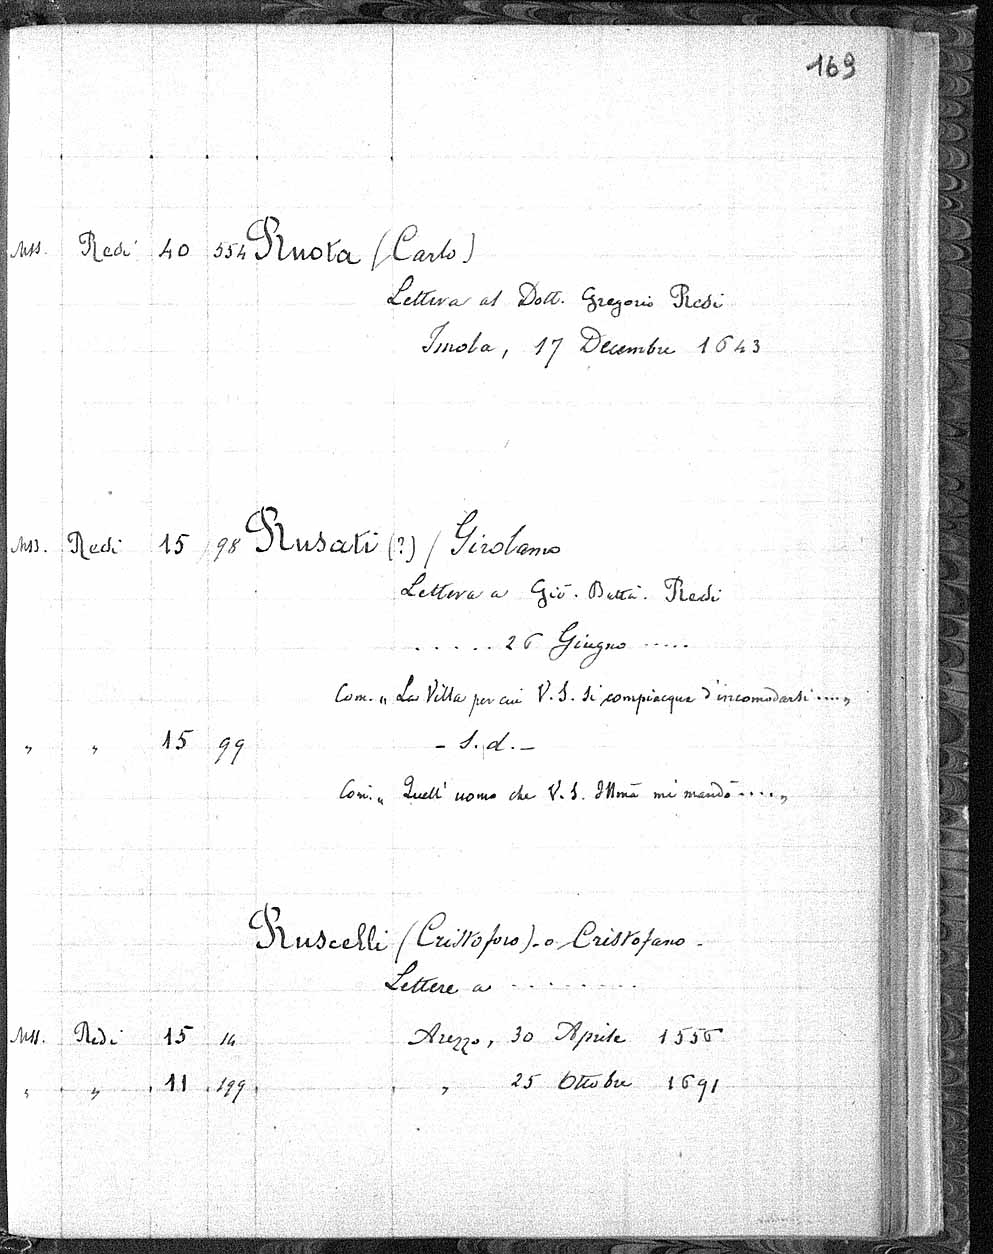 169
Mss. Redi 40 554 Ruota (Carlo)
Lettera al Dott. Gregorio Redi
Imola, 17 Decembre 1643
Mss. Redi 15 98 Rusati (?) / Girolamo
Lettera a Gio. Batta. Redi
. . . . . 26 Giugno . . . . .
Com. „ La Villa per cui V. S. si compiacque d'incomodarsi .... „
„ „ 15 99 - s. d. -
Com. „ Quell' uomo che V. S. Illmã mi mandò .... „
Ruscelli (Cristoforo) - o Cristofano -
Lettere a . . . . . . . .
Mss. Redi 15 14 Arezzo, 30 Aprile 1556
„ „ 11 199 „ 25 Ottobre 1691